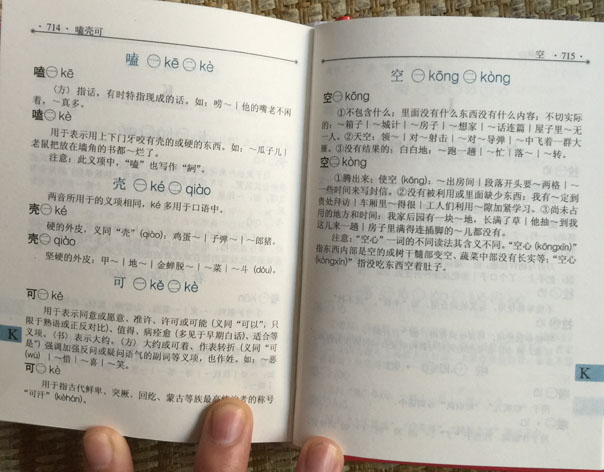 · 714 · 嗑壳可
嗑㊀kē ㊁kè
嗑㊀kē
〈方〉指话,有时特指现成的话。如:唠~|他的嘴老不闲
着,~真多。
嗑㊁kè
用于表示用上下门牙咬有壳的或硬的东西。如:~瓜子儿|
老鼠把放在墙角的书都~烂了。
注意:此义项中,“嗑”也写作“㓤”。
壳㊀ké ㊁qiào
两音所用于的义项相同,ké多用于口语中。
壳㊀ké
硬的外皮,义同“壳”(qiào):鸡蛋~|子弹~|~郎猪。
壳㊁qiào
坚硬的外皮:甲~|地~|金蝉脱~|~菜|~斗(dǒu)。
可㊀kě ㊁kè
可㊀kě
用于表示同意或愿意、准许、许可或可能(义同“可以”;只
限于熟语或正反对比)、值得、病痊愈(多见于早期白话)、适合等
义项。〈书〉表示大约、〈方〉大约或可着、作表转折(义同“可
是”)强调加强反问或疑问语气的副词等义项,也作姓。如:~恶
(wù)|~惜|~喜|~笑。
可㊁kè
用于指古代鲜卑、突厥、回纥、蒙古等族最高统治者的称号
“可汗”(kèhán)。
K
空 · 715 ·
空㊀kōng ㊁kòng
空㊀kōng
①不包含什么;里面没有什么东西没有什么内容;不切实际
的:~箱子|~城计|~房子|~想家|~话连篇|屋子里~无
一人。②天空:领~|对~射击|~对~导弹|~中飞着一群大
雁。③没有结果的;白白地:~跑一趟|~忙|落~|~转。
空㊁kòng
①腾出来;使空(kōng):~出房间|段落开头要~两格|~
一些时间来写封信。②没有被利用或里面缺少东西:我有~定到
贵处拜访|车厢里~得很|工人们利用~隙加紧学习。③尚未占
用的地方和时间:我家后园有一块~地,长满了草|他抽~到我
这儿来一趟|房子里满得连插脚的~儿都没有。
注意:“空心”一词的不同读法其含义不同。“空心(kōngxīn)”
指东西内部是空的或树干髓部变空、蔬菜中部没有长实等;“空心
(kòngxīn)”指没吃东西空着肚子。
K